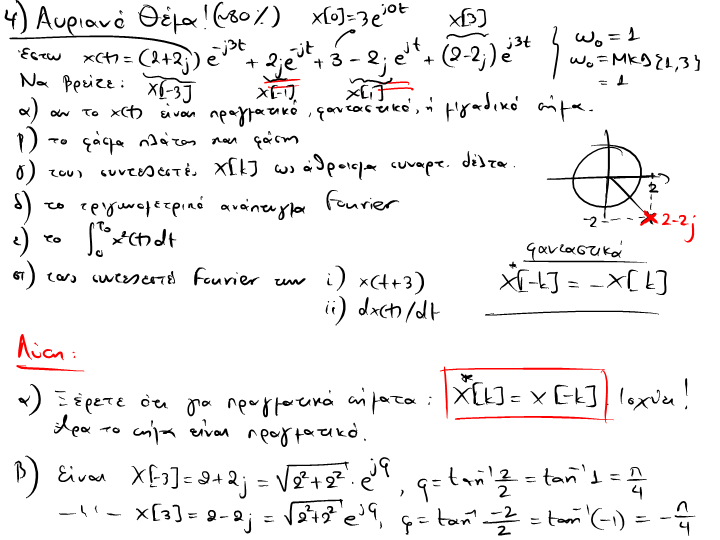 4) Αυριανό Θέμα! (~80%) X[0]=3e^{j0t} X[3]
Έστω x(t) = (2+2j) e^{-j3t} + 2je^{-jt} + 3 - 2j e^{jt} + (2-2j)e^{j3t} } ω₀ = 1
ω₀ = ΜΚΔ{1,3} = 1
X[-3] X[-1] X[1]
Να βρείτε:
α) αν το x(t) είναι πραγματικό, φανταστικό, ή μιγαδικό σήμα.
β) το φάσμα πλάτους και φάσης
γ) τους συντελεστές X[k] ως άθροισμα συναρτ. δέλτα.
δ) το τριγωνομετρικό ανάπτυγμα Fourier
ε) το ∫₀^{T₀} x²(t)dt
στ) τους συντελεστές Fourier των i) x(t+3)
ii) dx(t)/dt
2
-2
2-2j
φανταστικά
X*[-k] = -X[k]
Λύση:
α) Ξέρετε ότι για πραγματικά σήματα: X*[k] = X[-k] Ισχύει!
Άρα το σήμα είναι πραγματικό.
β) Είναι X[-3] = 2+2j = √(2²+2²) · e^{jφ}, φ = tan⁻¹ 2/2 = tan⁻¹ 1 = π/4
-''- X[3] = 2-2j = √(2²+2²) e^{jφ}, φ = tan⁻¹ -2/2 = tan⁻¹(-1) = -π/4